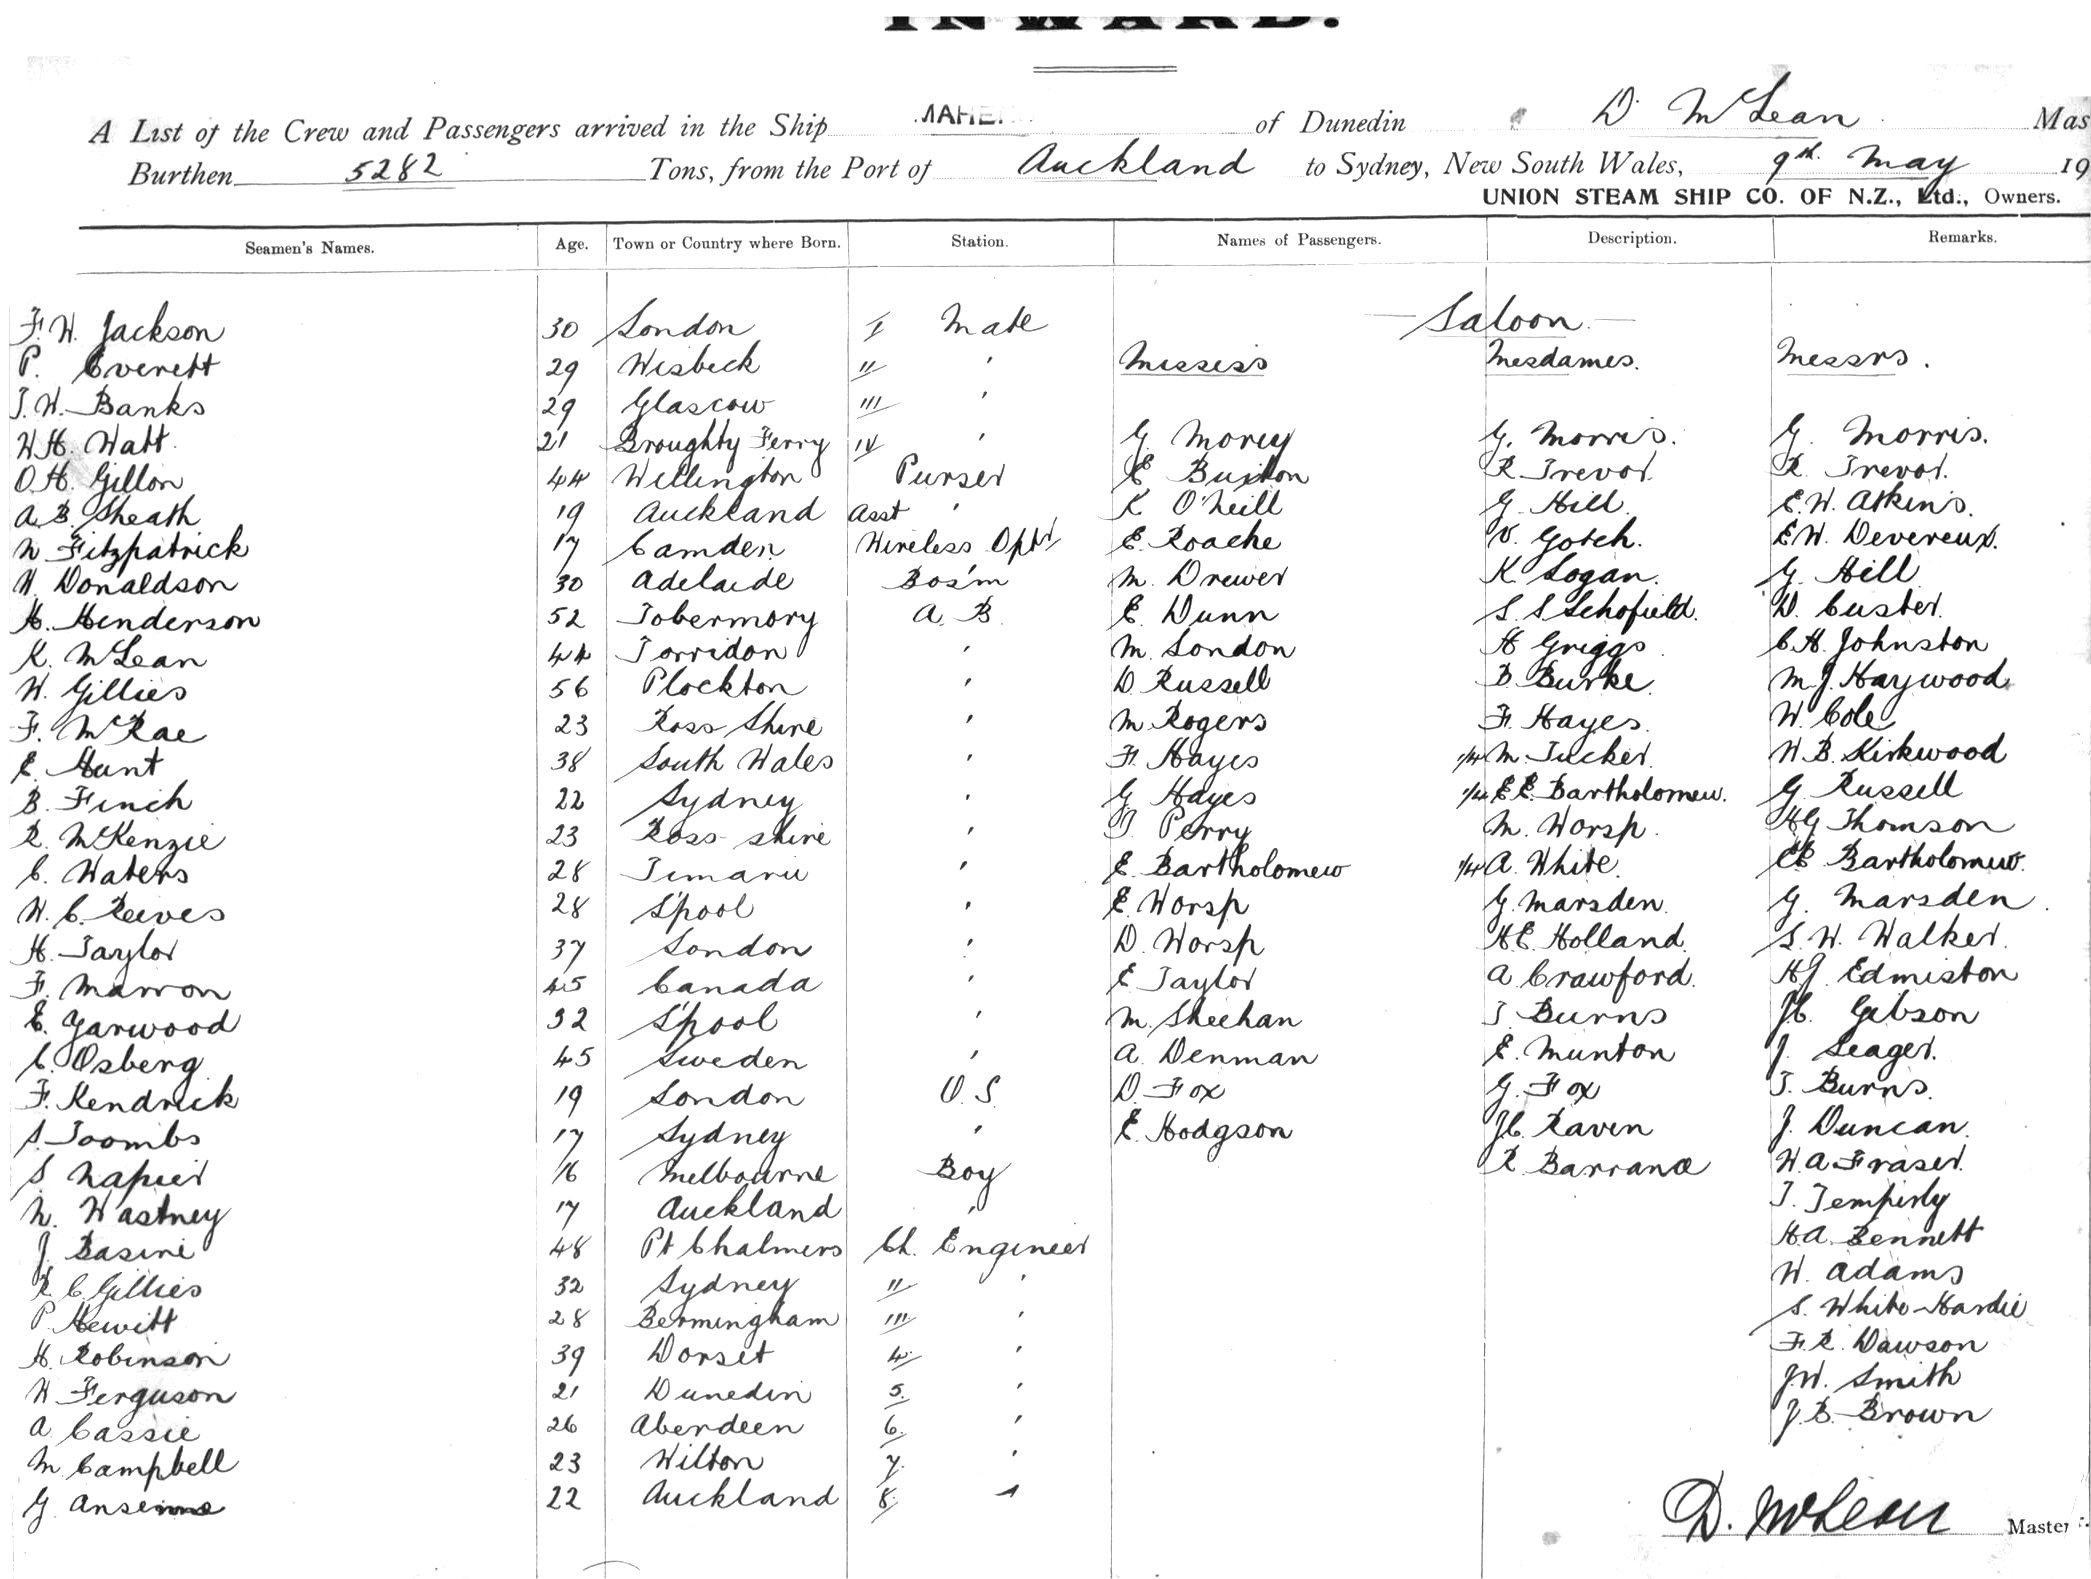 INWARD.
A List of the Crew and Passengers arrived in the Ship MAHE of Dunedin D. McLean Mas
Burthen 5282 Tons, from the Port of Auckland to Sydney, New South Wales, 9th. May 19
UNION STEAM SHIP CO. OF N.Z., Ltd., Owners.
Seamen's Names. Age. Town or Country where Born. Station. Names of Passengers. Description. Remarks.
F. W. Jackson 30 London I Mate — Saloon. —
P. Everett 29 Wisbeck II ' Missess Mesdames. Messrs.
T. W. Banks 29 Glascow III '
W H. Watt. 21 Broughty Ferry IV ' G. Morey G. Morris. G. Morris.
O. H. Gillon 44 Wellington Purser E Buxton R Trevor. R. Trevor.
A. B. Sheath 19 Auckland Asst ' K O'Neill G. Hill. E. W. Atkins.
N Fitzpatrick 17 Camden. Wireless Optr E. Roache V. Gotch. E. W. Devereux.
W. Donaldson 30 Adelaide Bos'm M. Drewer K Logan. G. Hill
H. Henderson 52 Tobermory A. B. E. Dunn S. S Schofield. D. Custer.
K. McLean 44 Torridon ' M. London H Griggs. C. H. Johnston
W. Gillies 56 Plockton ' D. Russell B. Burke. M. J. Haywood
F. McRae 23 Ross Shire ' M Rogers F. Hayes. W. Cole
E Hunt 38 South Wales ' F. Hayes 1/4 M. Tucker. W. B. Kirkwood
B. Finch 22 Sydney ' G Hayes 1/4 E. E. Bartholomew. G Russell
R. McKenzie 23 Ross-shire ' T. Perry M. Worsp. H G Thomson
C. Waters 28 Timaru ' E. Bartholomew 1/4 A. White. Bartholomew.
W. C. Reeves 28 L'pool ' E. Worsp G. Marsden. G. Marsden.
H. Taylor 37 London ' D. Worsp H E. Holland. S. W. Walker.
F. Marron 45 Canada ' E Taylor A Crawford. H. J. Edmiston
E. Garwood 32 L'pool ' M. Sheehan T Burns J C. Gibson
C. Osberg 45 Sweden ' A. Denman E. Munton J. Seager.
F. Kendrick 19 London O. S. D. Fox G. Fox T. Burns.
S. Toombs 17 Sydney ' E. Hodgson J C. Raven J. Duncan.
S Napier 16 Melbourne Boy R Barrance W. A Fraser.
N. Wastney 17 Auckland ' T. Temperly
J. Basire 48 Pt Chalmers Ch. Engineer H. A. Bennett
R C. Gillies 32 Sydney II ' W. Adams
P. Hewitt 28 Bermingham III ' S. White-Hardie
H. Robinson 39 Dorset 4. ' F. R. Dawson
W Ferguson 21 Dunedin 5. ' J. W. Smith
A Cassie 26 Aberdeen 6. ' J. B. Brown
M Campbell 23 Wilton 7. '
G. 22 Auckland 8. '
D. McLean Master